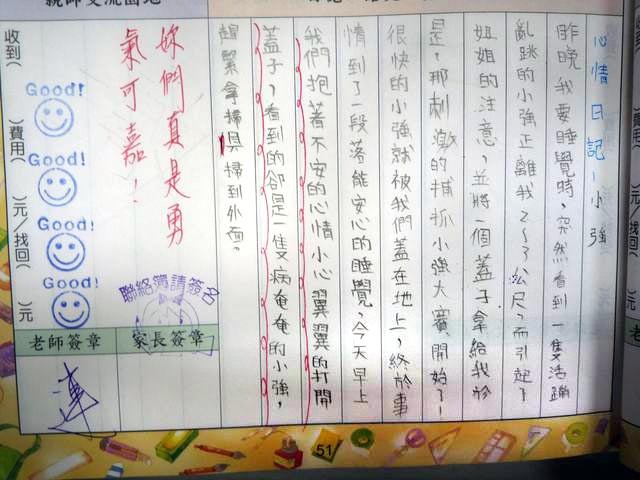 心情日記-小強
昨晚我要睡覺時,突然看到一隻活蹦
亂跳的小強正離我2~3公尺,而引起了
姐姐的注意,並將一個蓋子拿給我於
是,那刺激的捕抓小強大賽開始了!
很快的小強就被我們蓋在地上,終於事
情到了一段落能安心的睡覺,今天早上
我們抱著不安的心情小心翼翼的打開
蓋子,看到的卻是一隻病奄奄的小強,
趕緊拿掃具掃到外面。
妳們真是勇
氣可嘉!
聯絡簿請簽名
家長簽章
老師簽章
Good!
Good!
Good!
Good!
收到( )費用( )元/找回( )元
51